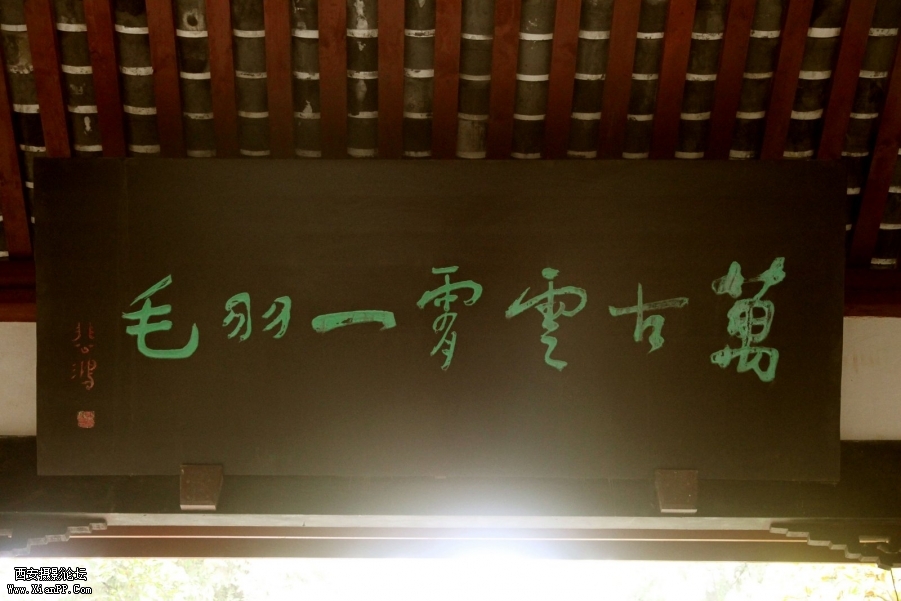 萬古雲霄一羽毛
悲鴻
西安摄影论坛
Www.XianPP.Com